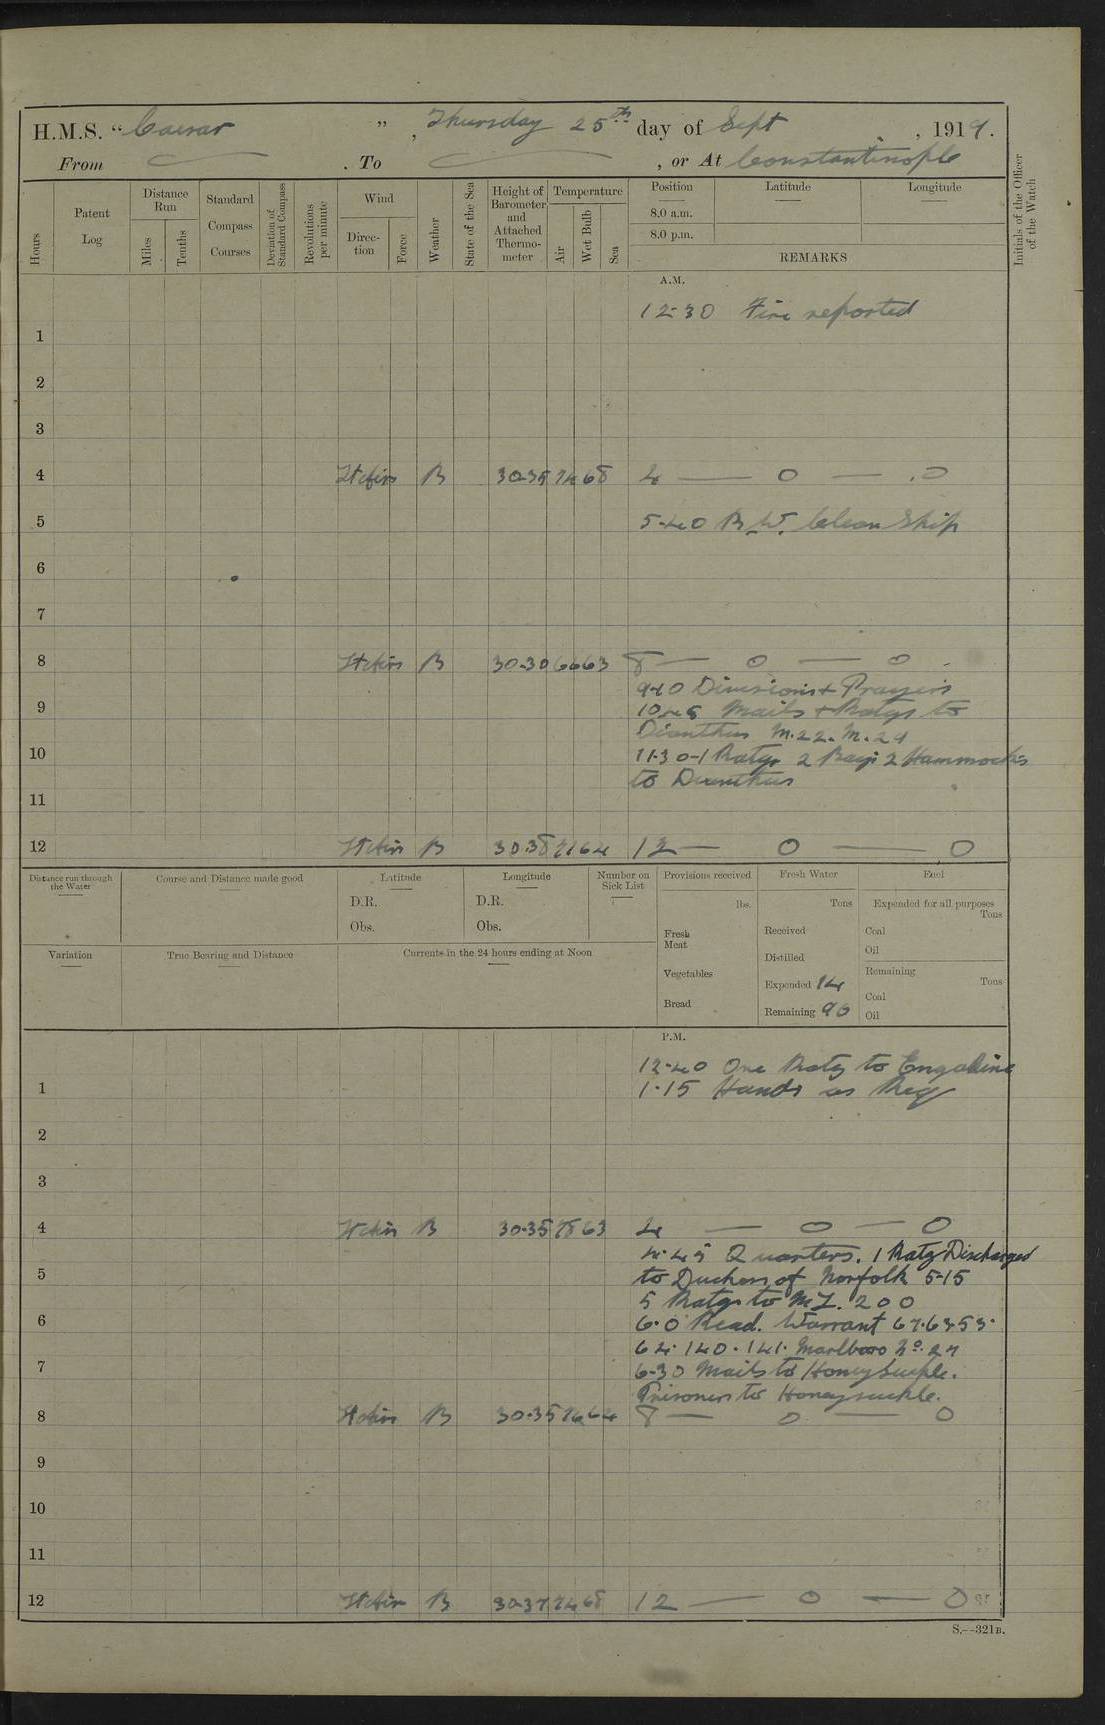 H.M.S. "Caesar", Thursday 25th day of Sept, 1919.
From — . To — , or At Constantinople
Hours
Patent Log
Distance Run
Miles
Tenths
Standard Compass Courses
Deviation of Standard Compass
Revolutions per minute
Wind
Direction
Force
Weather
State of the Sea
Height of Barometer and Attached Thermometer
Temperature
Air
Wet Bulb
Sea
Position
Latitude
Longitude
8.0 a.m.
8.0 p.m.
REMARKS
Initials of the Officer of the Watch
A.M.
12·30 Fire reported
1
2
3
4 B 30·35 74 68 4 — 0 — 0
5 5·40 B.W. Clean Ship
6
7
8 B 30·30 66 63 8 — 0 — 0
9·10 Divisions + Prayers
9 10·45 Mails + Ratgs to
Dianthus M.22. M.24
10 11·30 1 Ratg. 2 Bags 2 Hammocks
to Dianthus
11
12 B 30·38 71 64 12 — 0 — 0
Distance run through the Water
Course and Distance made good
Latitude
D.R.
Obs.
Longitude
D.R.
Obs.
Number on Sick List
Provisions received
lbs.
Fresh Meat
Vegetables
Bread
Fresh Water
Tons
Received
Distilled
Expended 14
Remaining 90
Fuel
Expended for all purposes
Tons
Coal
Oil
Remaining
Tons
Coal
Oil
Variation
True Bearing and Distance
Currents in the 24 hours ending at Noon
P.M.
12·40 One Ratg to Engadine
1 1·15 Hands as Req
2
3
4 B 30·35 78 63 4 — 0 — 0
4·45 Quarters. 1 Ratg Discharged
5 to Duchess of Norfolk 5·15
5 Ratgs to M.L. 200
6 6·0 Read. Warrant
64· 140· 141· Marlboro No. 27
7 6·30 Mails to Honeysuckle.
Prisoners to Honeysuckle.
8 B 30·35 76 64 8 — 0 — 0
9
10
11
12 B 30·37 74 68 12 — 0 — 0
S.—321B.